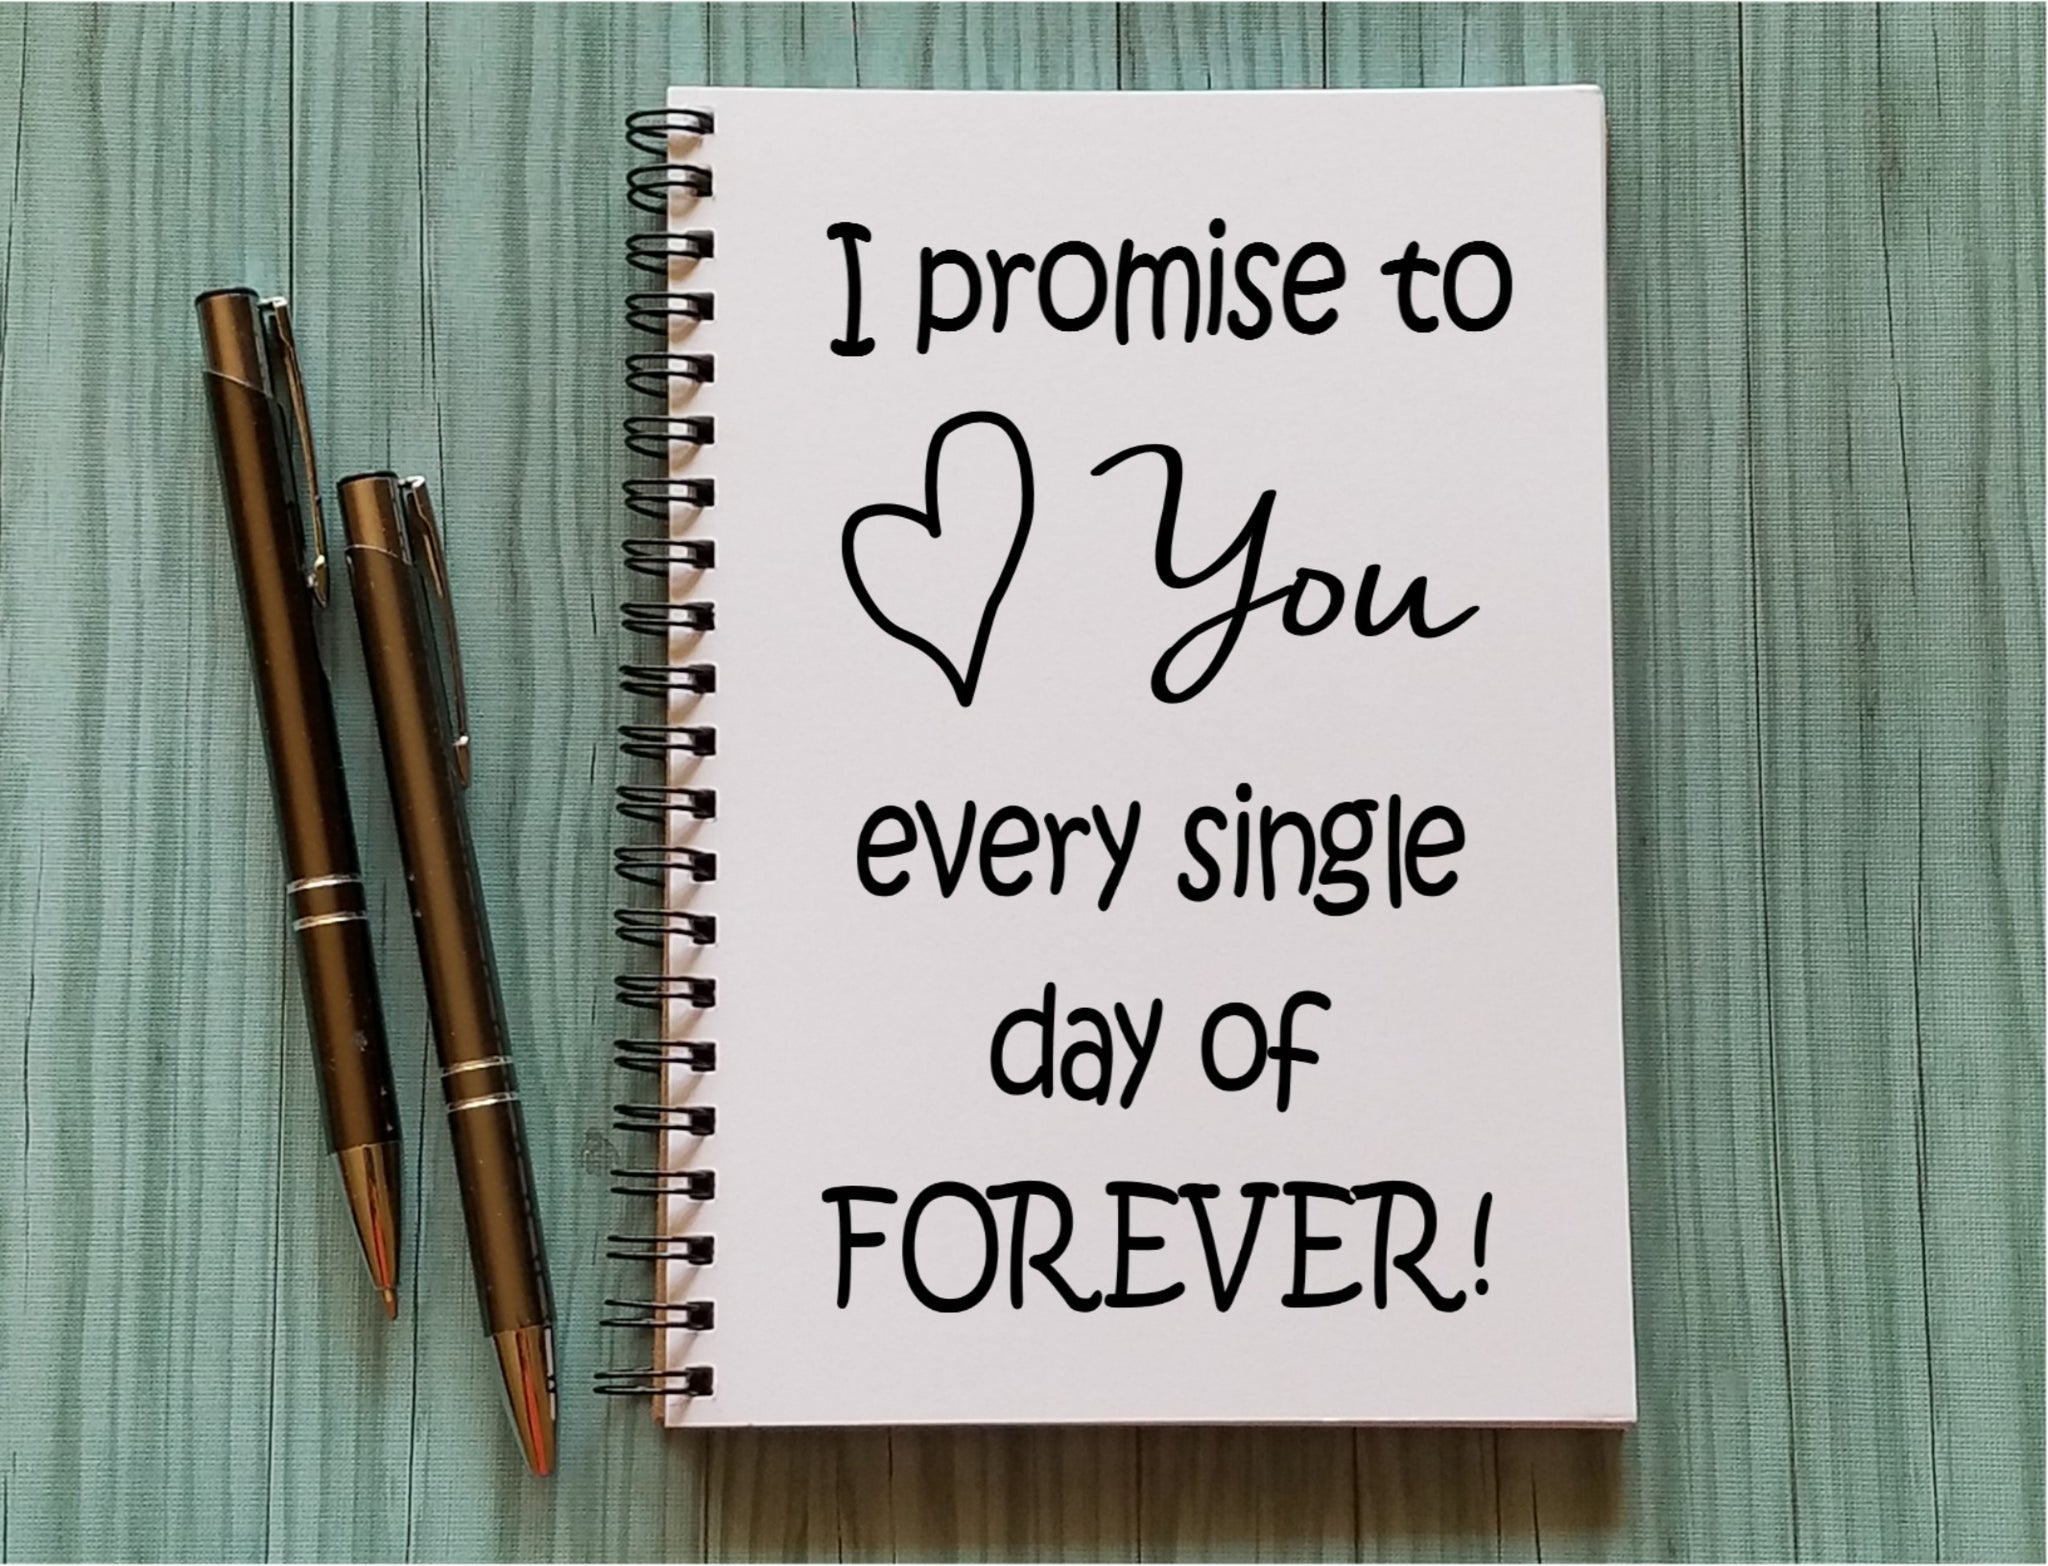 I promise to
You
every single
day of
FOREVER!